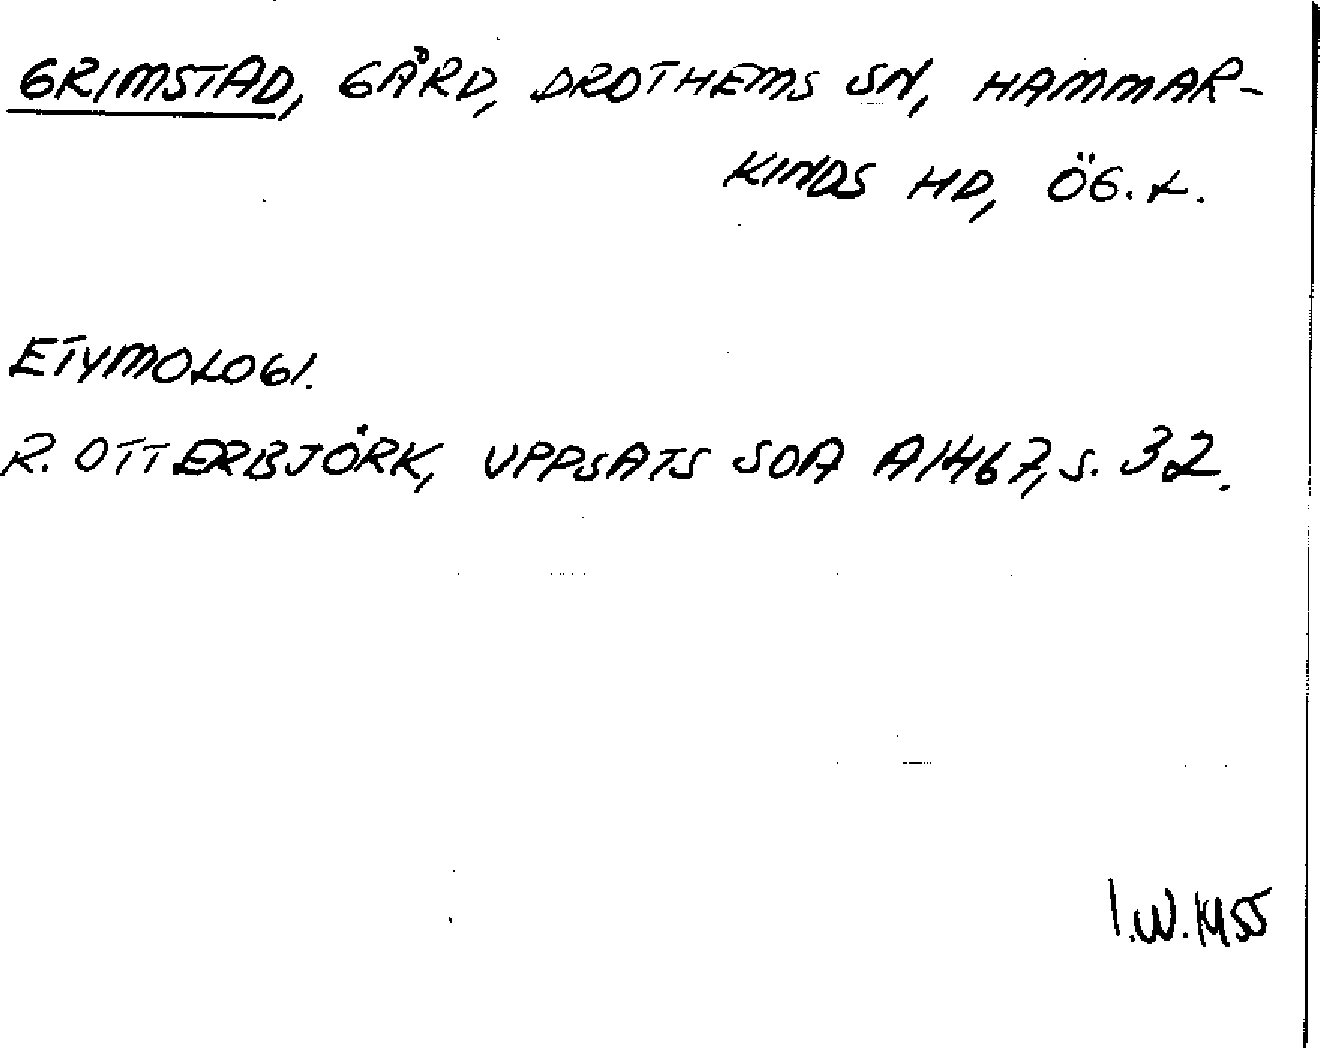 GRIMSTAD, GÅRD, DROTHEMS SN, HAMMAR-
KINDS HD, ÖG. L.
ETYMOLOGI.
R. OTTERBJÖRK, UPPSATS SOA A1467, S. 32.
I.W. 1955